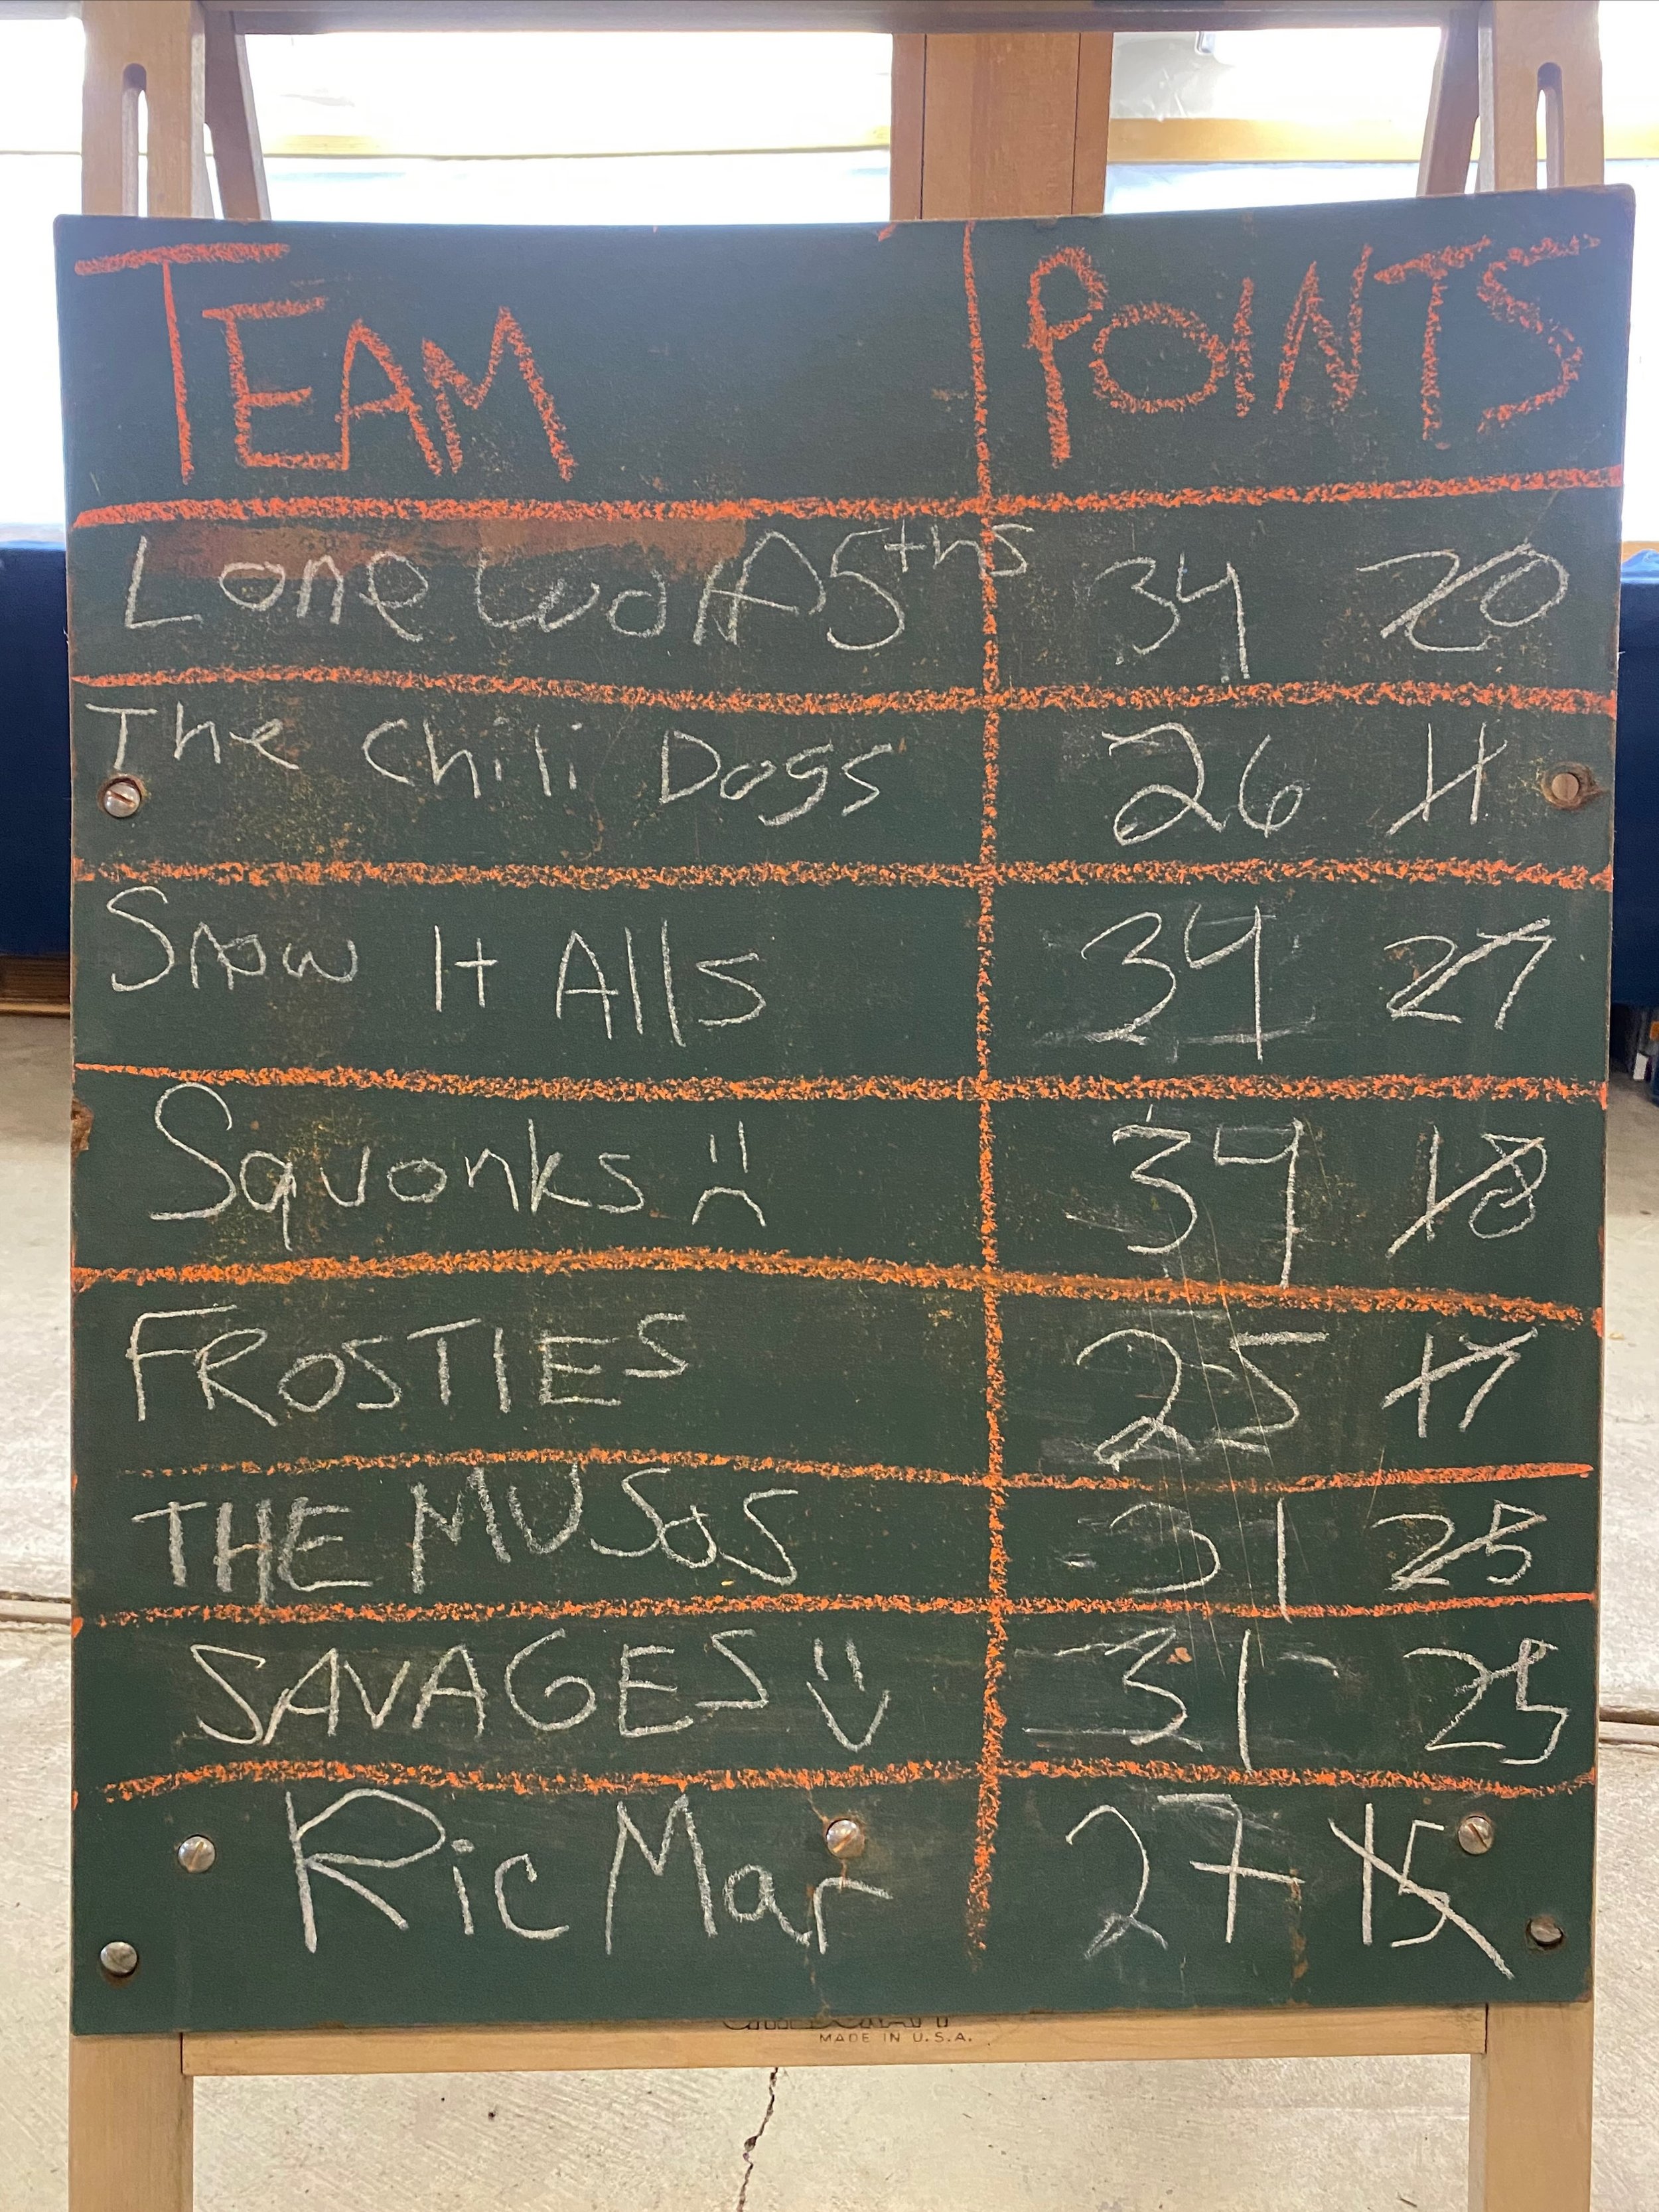 TEAM POINTS
Lone Wolf 5ths 34 20
The Chili Dogs 26 11
Snow It Alls 34 27
Squonks 34 18
FROSTIES 25 17
THE MUSOS 31 25
SAVAGES 31 25
Ric Mar 27 15
MADE IN U.S.A.